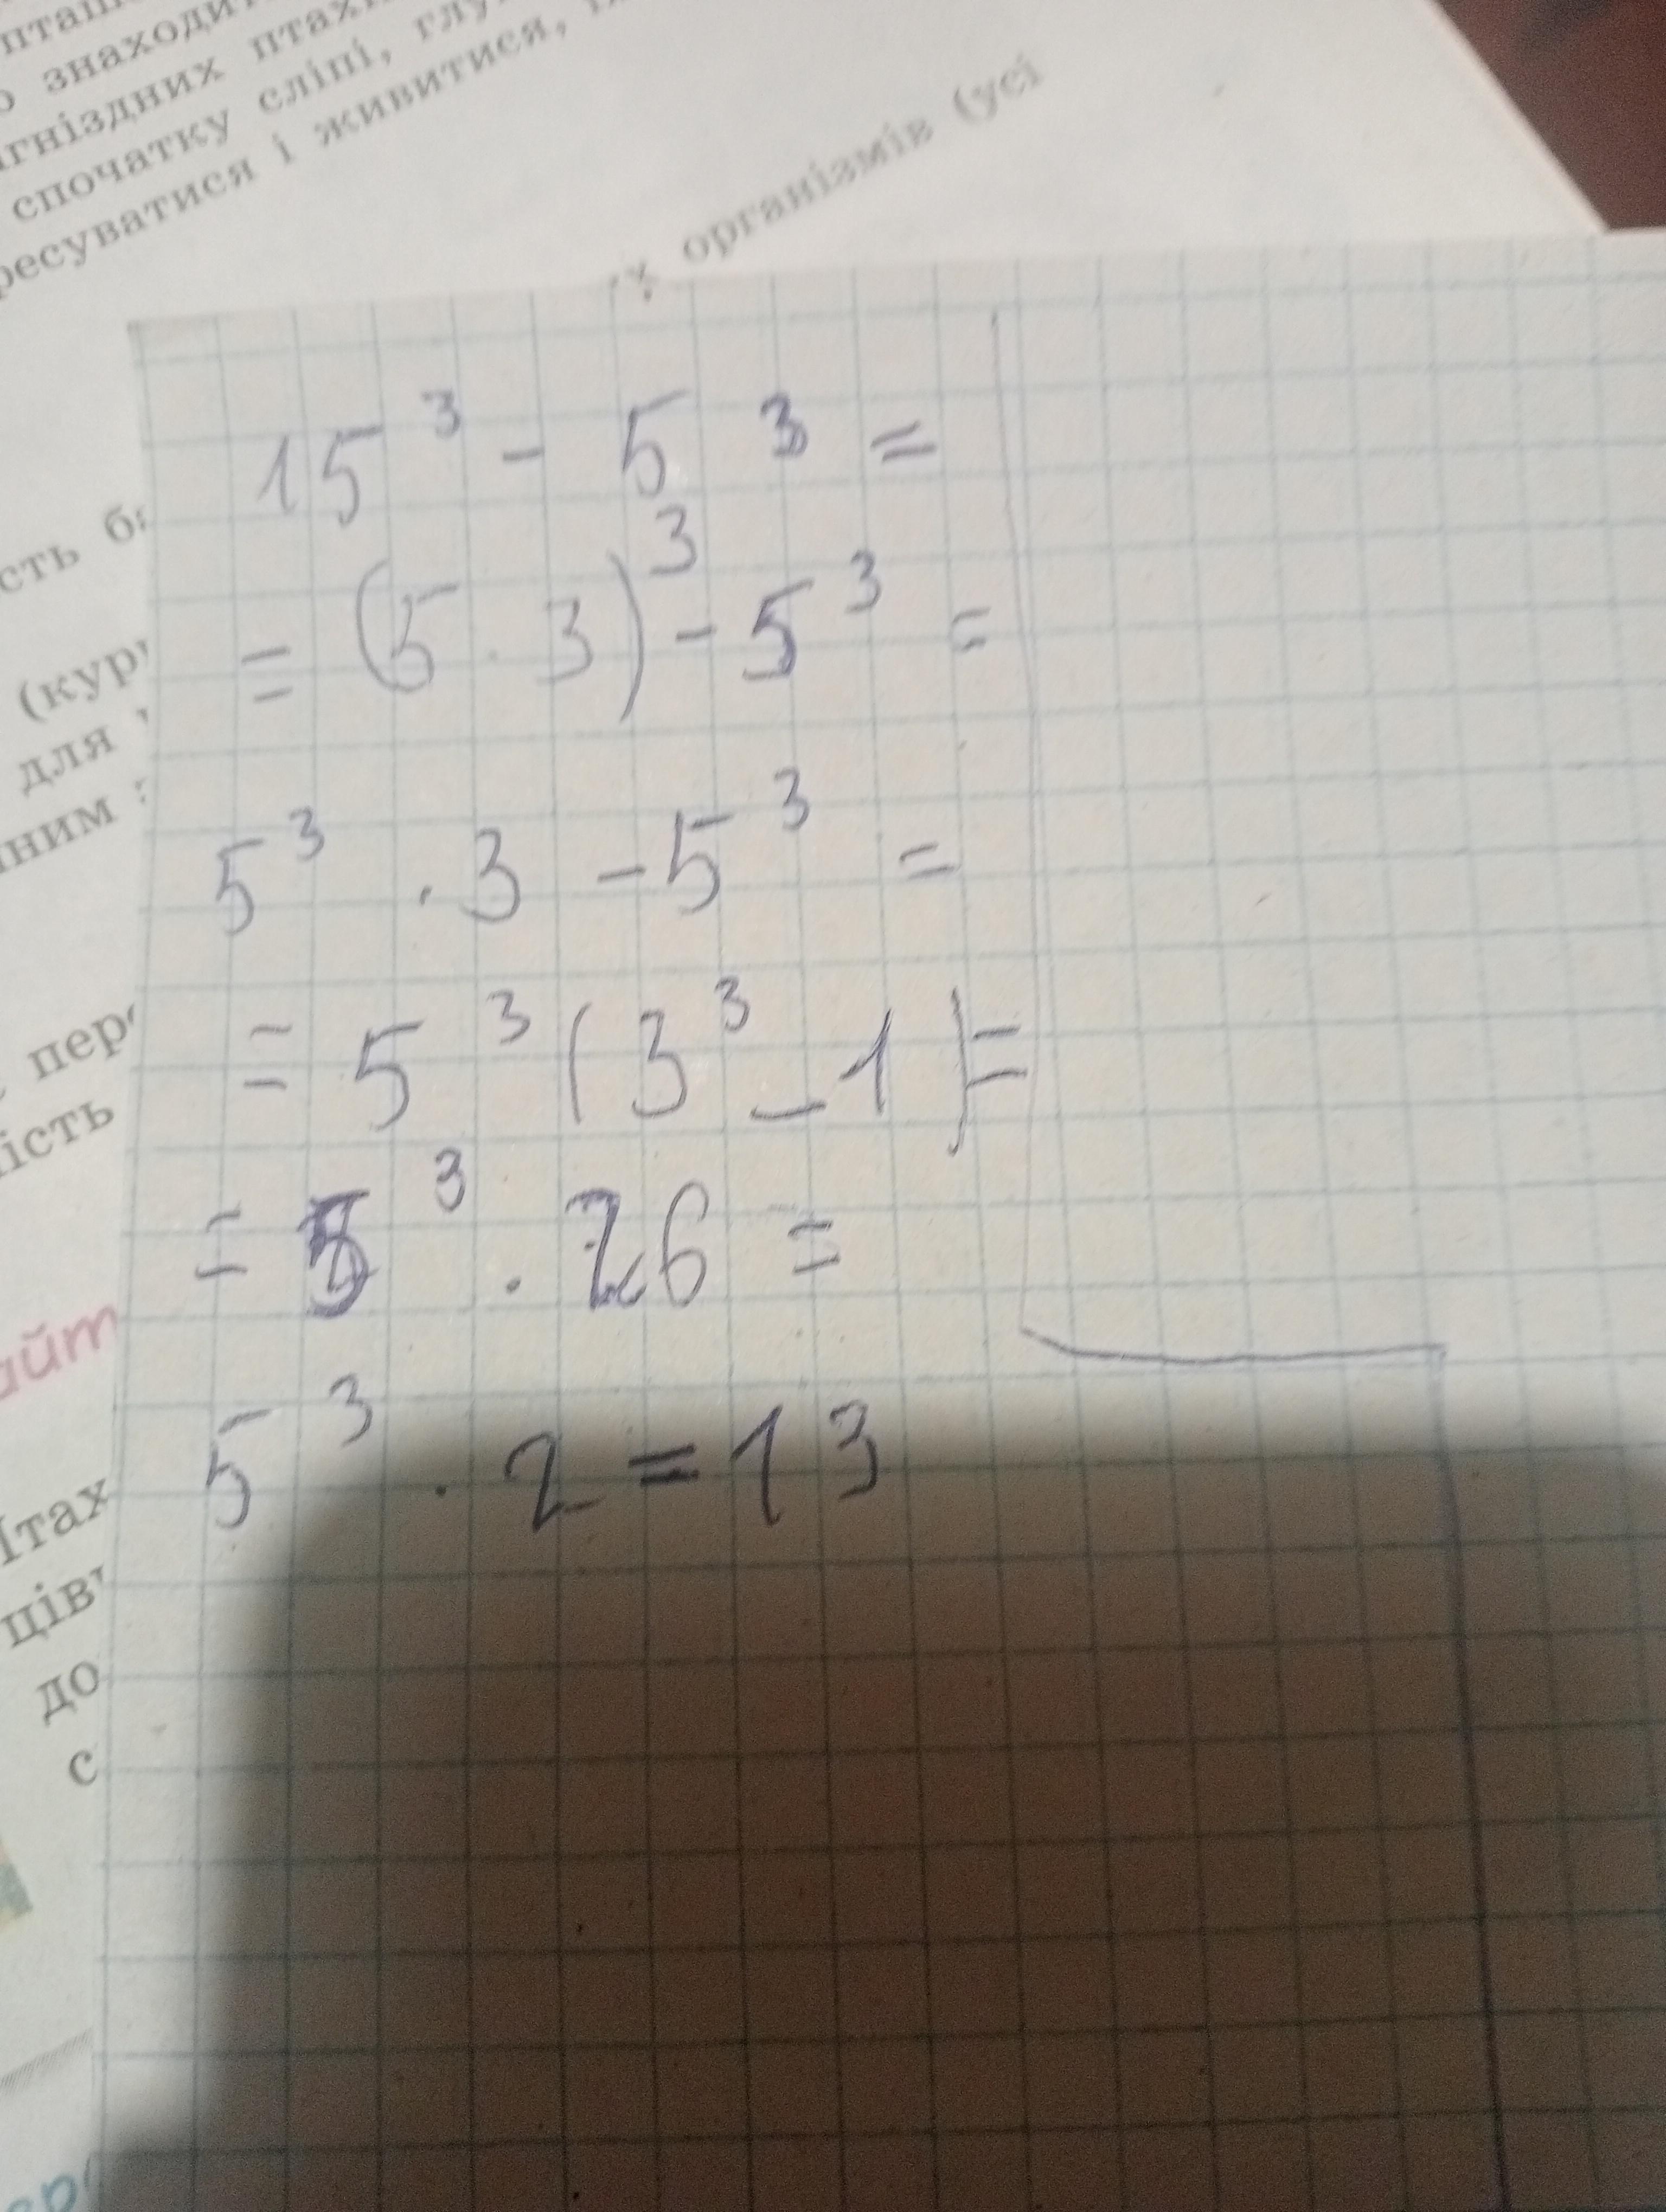 знаходи
гніздних птах
спочатку сліпі, глу
ресуватися і живитися,
організмів (усі
сть
(кур
для
ним
пер
ість
айт
тах
ців
до
с
15³ - 5³ =
= (5 · 3)³ - 5³ =
5³ · 3 - 5³ =
= 5³ (3³ - 1) =
= 5³ · 26 =
5³ · 2 = 13